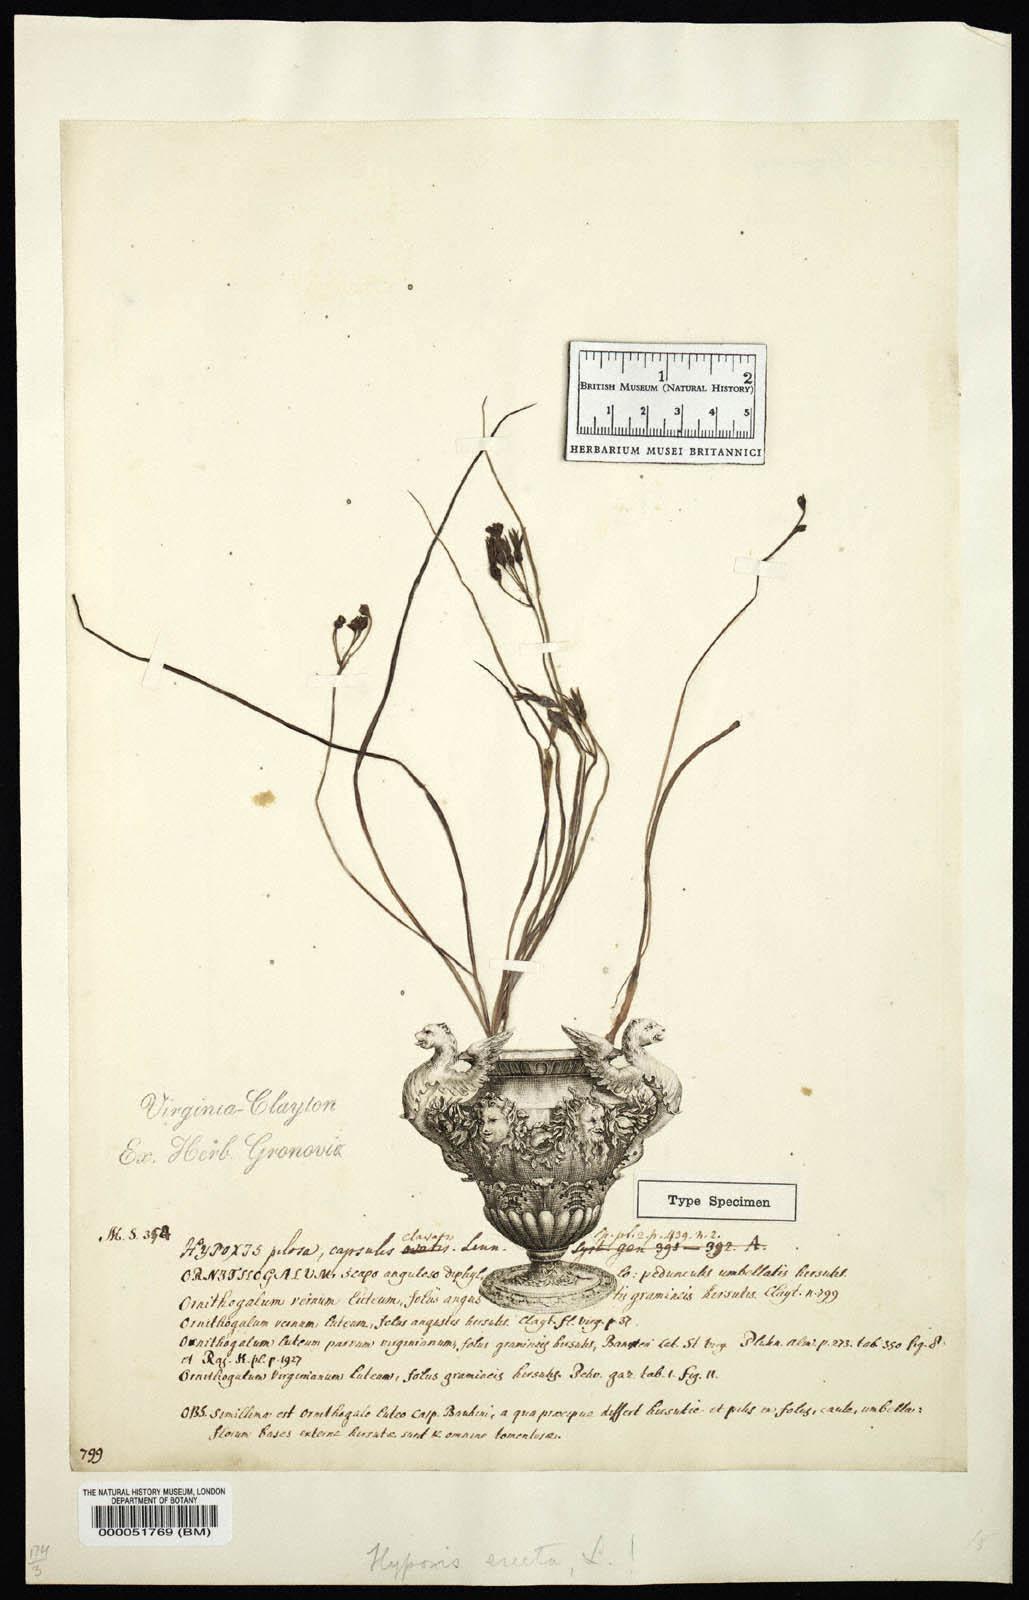 1 2
BRITISH MUSEUM (NATURAL HISTORY)
1 2 3 4 5
HERBARIUM MUSEI BRITANNICI
Virginia-Clayton
Ex. Herb. Gronovii
Type Specimen
HYPOXIS pilosa, capsulis Linn. Syst. gen. A.
ORNITHOGALUM, scapo anguloso diphyl lo: pedunculis umbellatis hirsutis.
Ornithogalum vernum luteum, foliis angus tis gramineis hirsutis. Clayt. n. 799
Ornithogalum vernum luteum, foliis angustis hirsutis. Clayt. fl. virg. p. 37.
Ornithogalum luteum parvum virginianum, foliis gramineis hirsutis, Banisteri Cat. St. Virg. Plukn. alm. p. 273. tab. 350. fig. 8.
et Raj. H. pl. p. 1927
Ornithogalum Virginianum luteum, foliis gramineis hirsutis. Petiv. gaz. tab. 1. fig. 11.
OBS. Simillima est Ornithogalo luteo Casp. Bauhini, a qua præcipue differt hirsutie et pilis in foliis, caule, umbella:
florum bases externe hirsutæ sunt & omnino tomentosæ.
799
THE NATURAL HISTORY MUSEUM, LONDON
DEPARTMENT OF BOTANY
000051769 (BM)
174
3
Hypoxis erecta, L. !